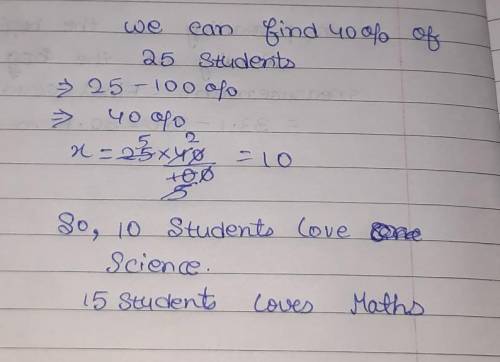 we can find 40% of
25 students
⇒ 25 - 100%
⇒ 40%
x = 25 5 × 40 2 / 100 5 = 10
So, 10 Students love
Science.
15 Students loves Maths